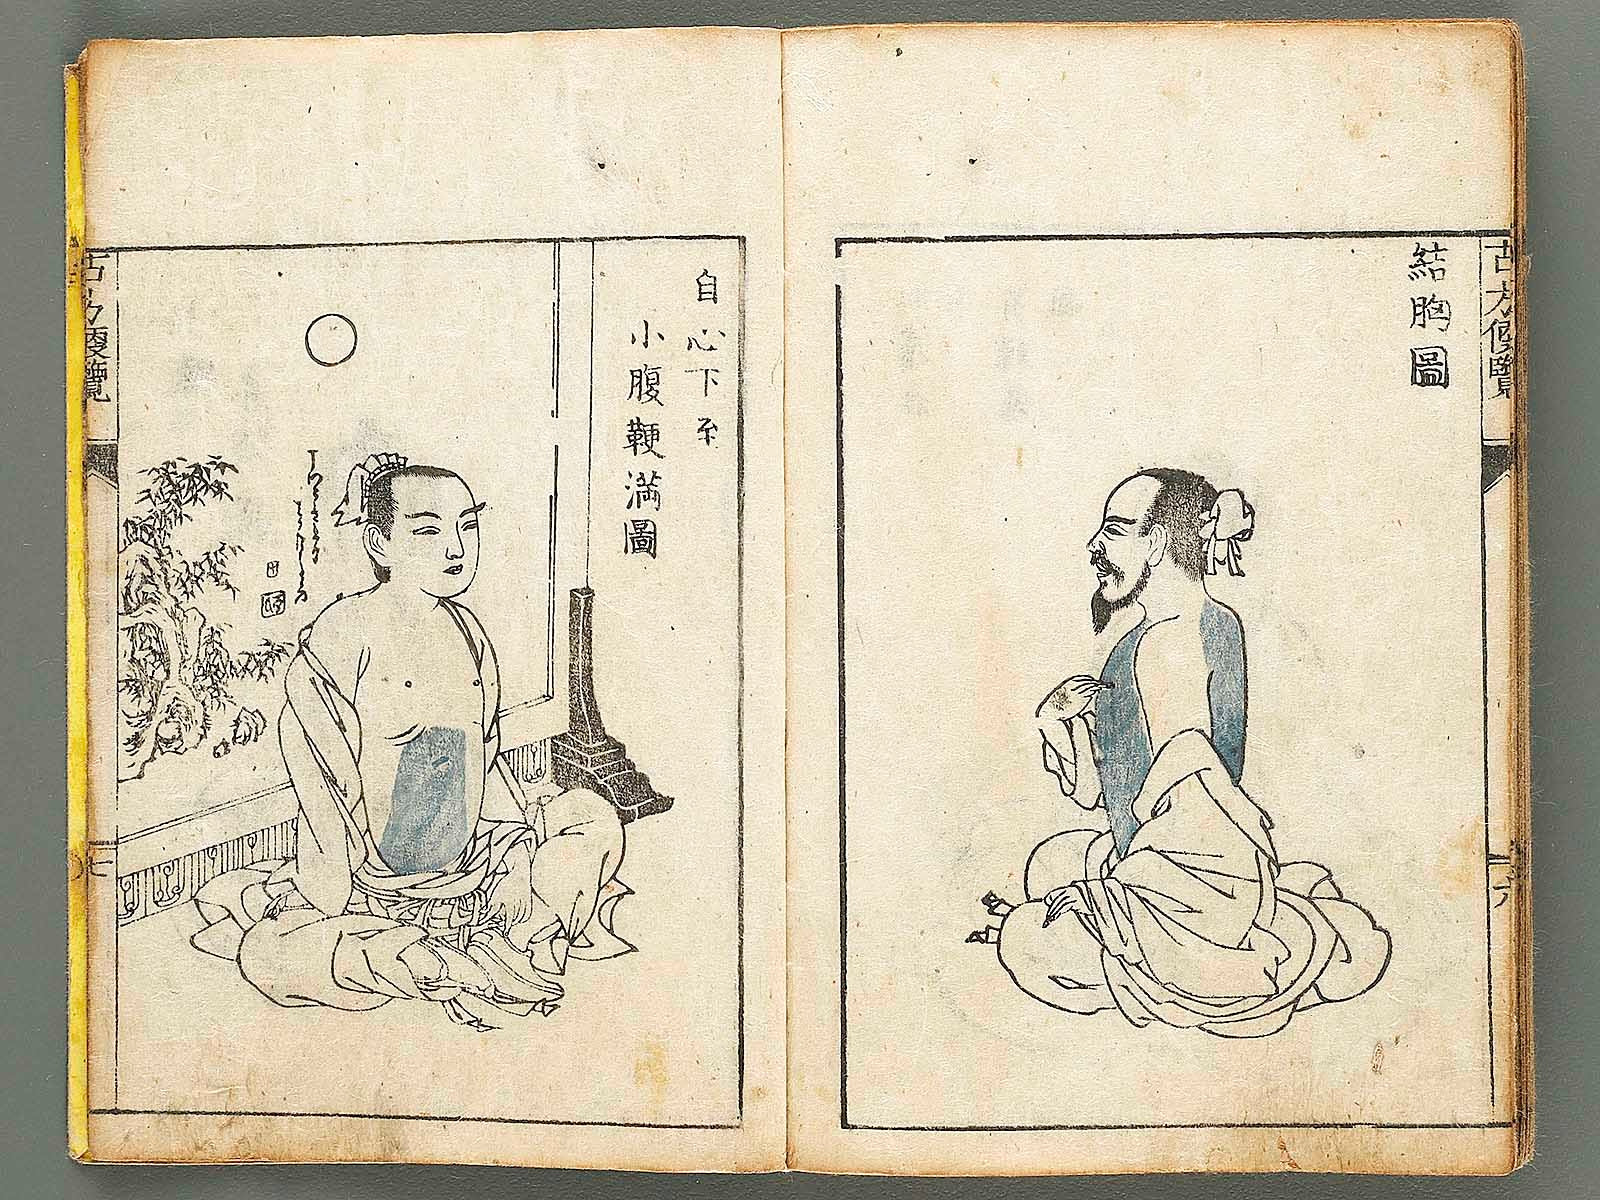 古方便覧
結胸圖
六
自心下至
小腹鞕満圖
古方便覧
七